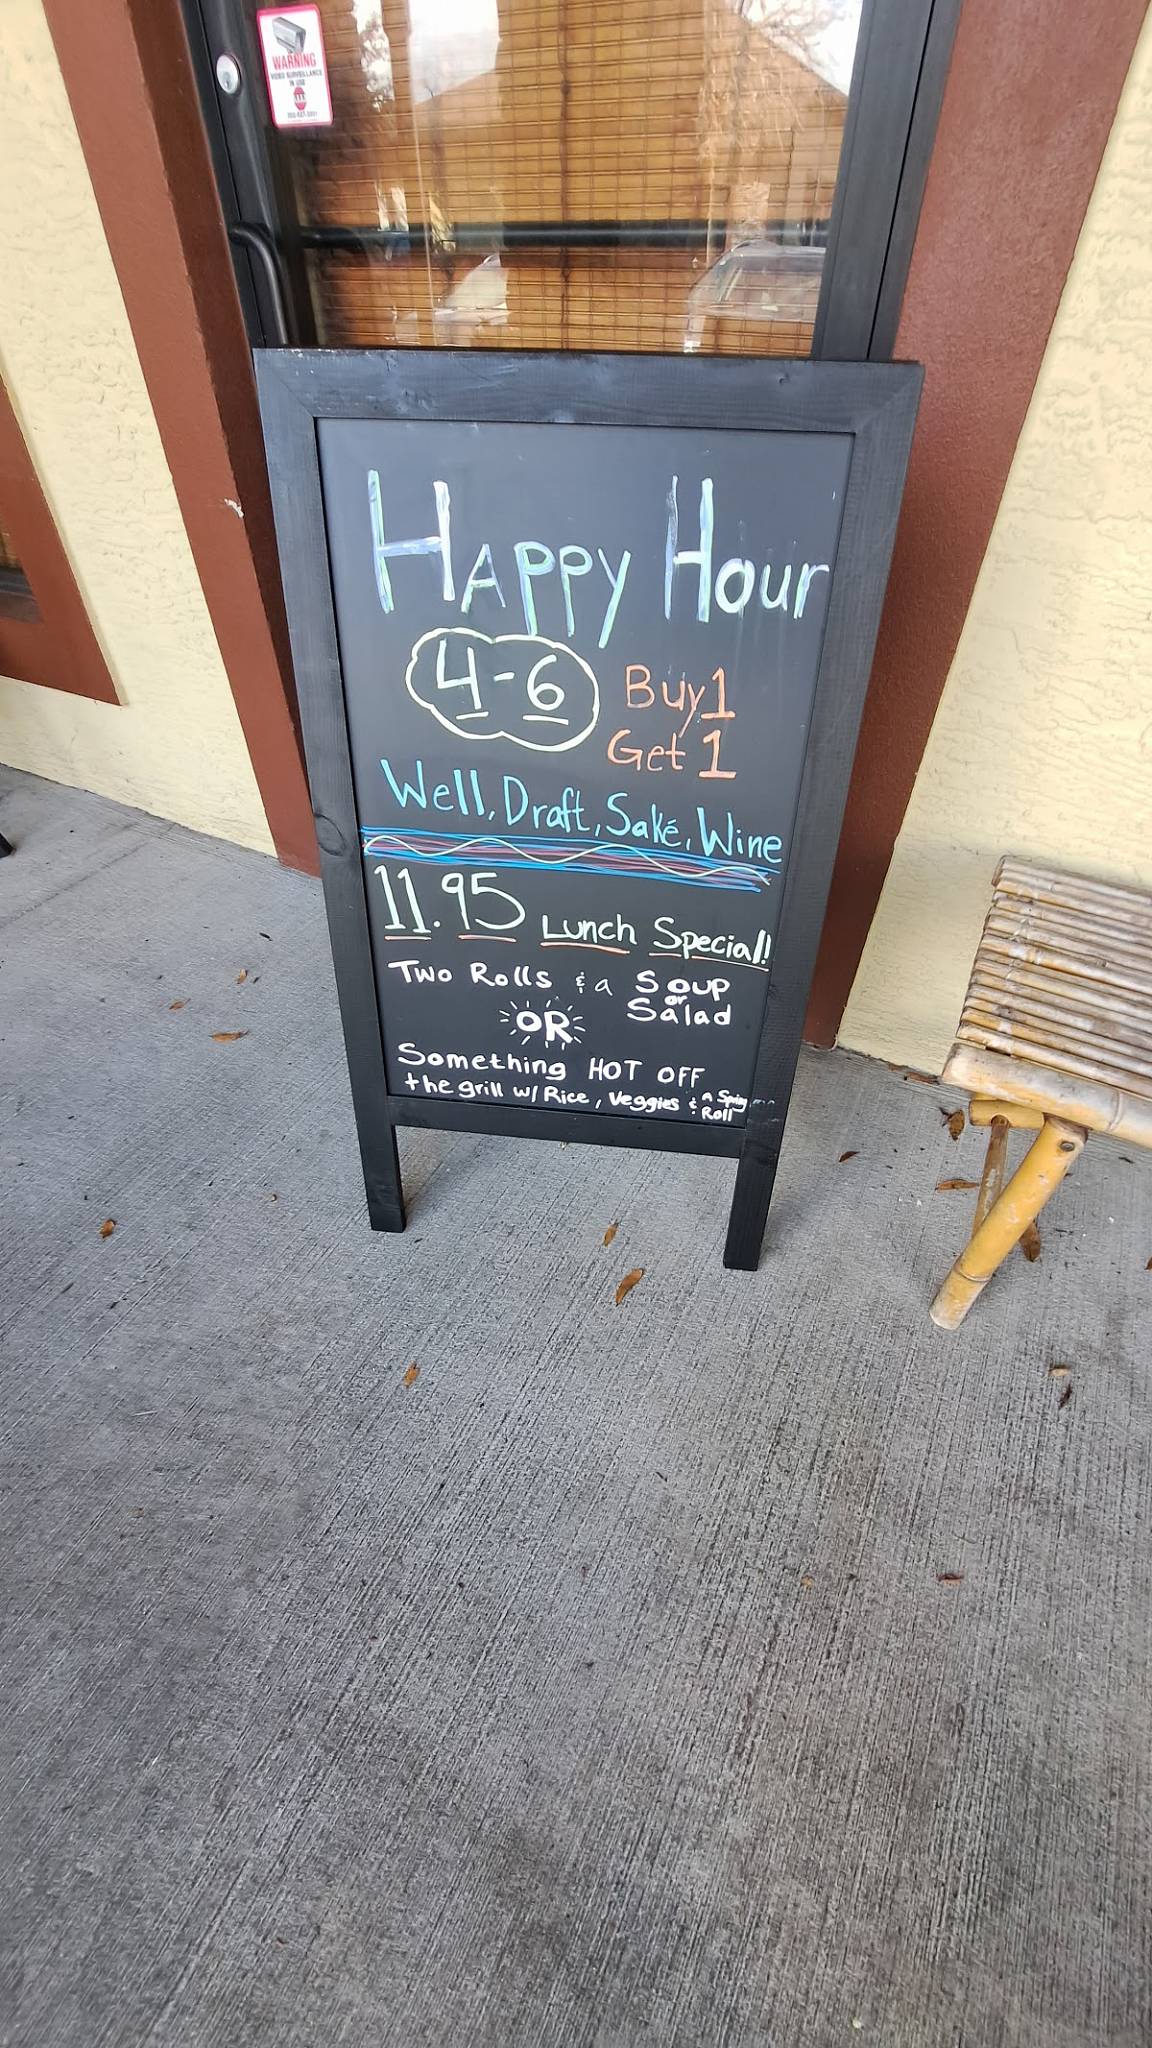 WARNING
VIDEO SURVEILLANCE
IN USE
Happy Hour
4-6
Buy 1
Get 1
Well, Draft, Saké, Wine
11.95 Lunch Special!
Two Rolls & a Soup
or
Salad
OR
Something HOT OFF
the grill w/ Rice, Veggies & a Spring
Roll